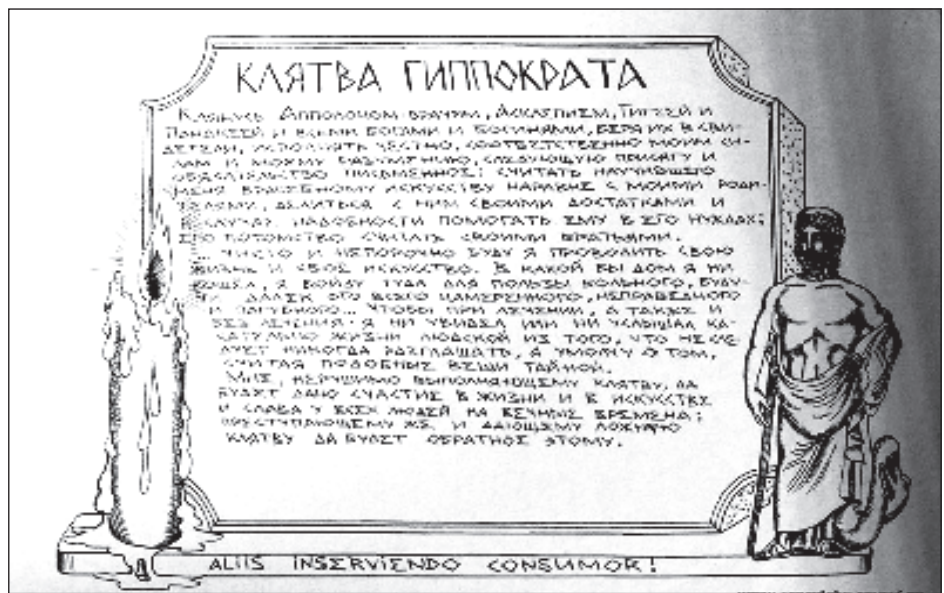 КЛЯТВА ГИППОКРАТА
Клянусь Апполоном-врачом, Асклепием, Гигеей и
Панакеей и всеми богами и богинями, беря их в сви-
детели, исполнять честно, соответственно моим си-
лам и моему разумению, следующую присягу и
обязательство письменное: считать научившего
меня врачебному искусству наравне с моими роди-
телями, делиться с ним своими достатками и
в случае надобности помогать ему в его нуждах;
его потомство считать своими братьями.
... Чисто и непорочно буду я проводить свою
жизнь и свое искусство. В какой бы дом я ни
вошел, я войду туда для пользы больного, буду-
чи далек ото всего намеренного, неправедного
и пагубного... Чтобы при лечении, а также и
без лечения я ни увидел или ни услышал ка-
сательно жизни людской из того, что не сле-
дует никогда разглашать, я умолчу о том,
считая подобные вещи тайной.
Мне, нерушимо выполняющему клятву, да
будет дано счастие в жизни и в искусстве
и слава у всех людей на вечные времена;
преступающему же и дающему ложную
клятву да будет обратное этому.
ALIIS INSERVIENDO CONSUMOR!